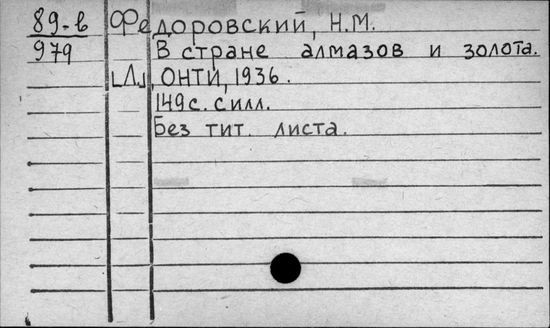 89-в Федоровский, Н.М.
979 В стране алмазов и золота.
[Л], ОНТИ, 1936.
149 с. с илл.
Без тит. листа.